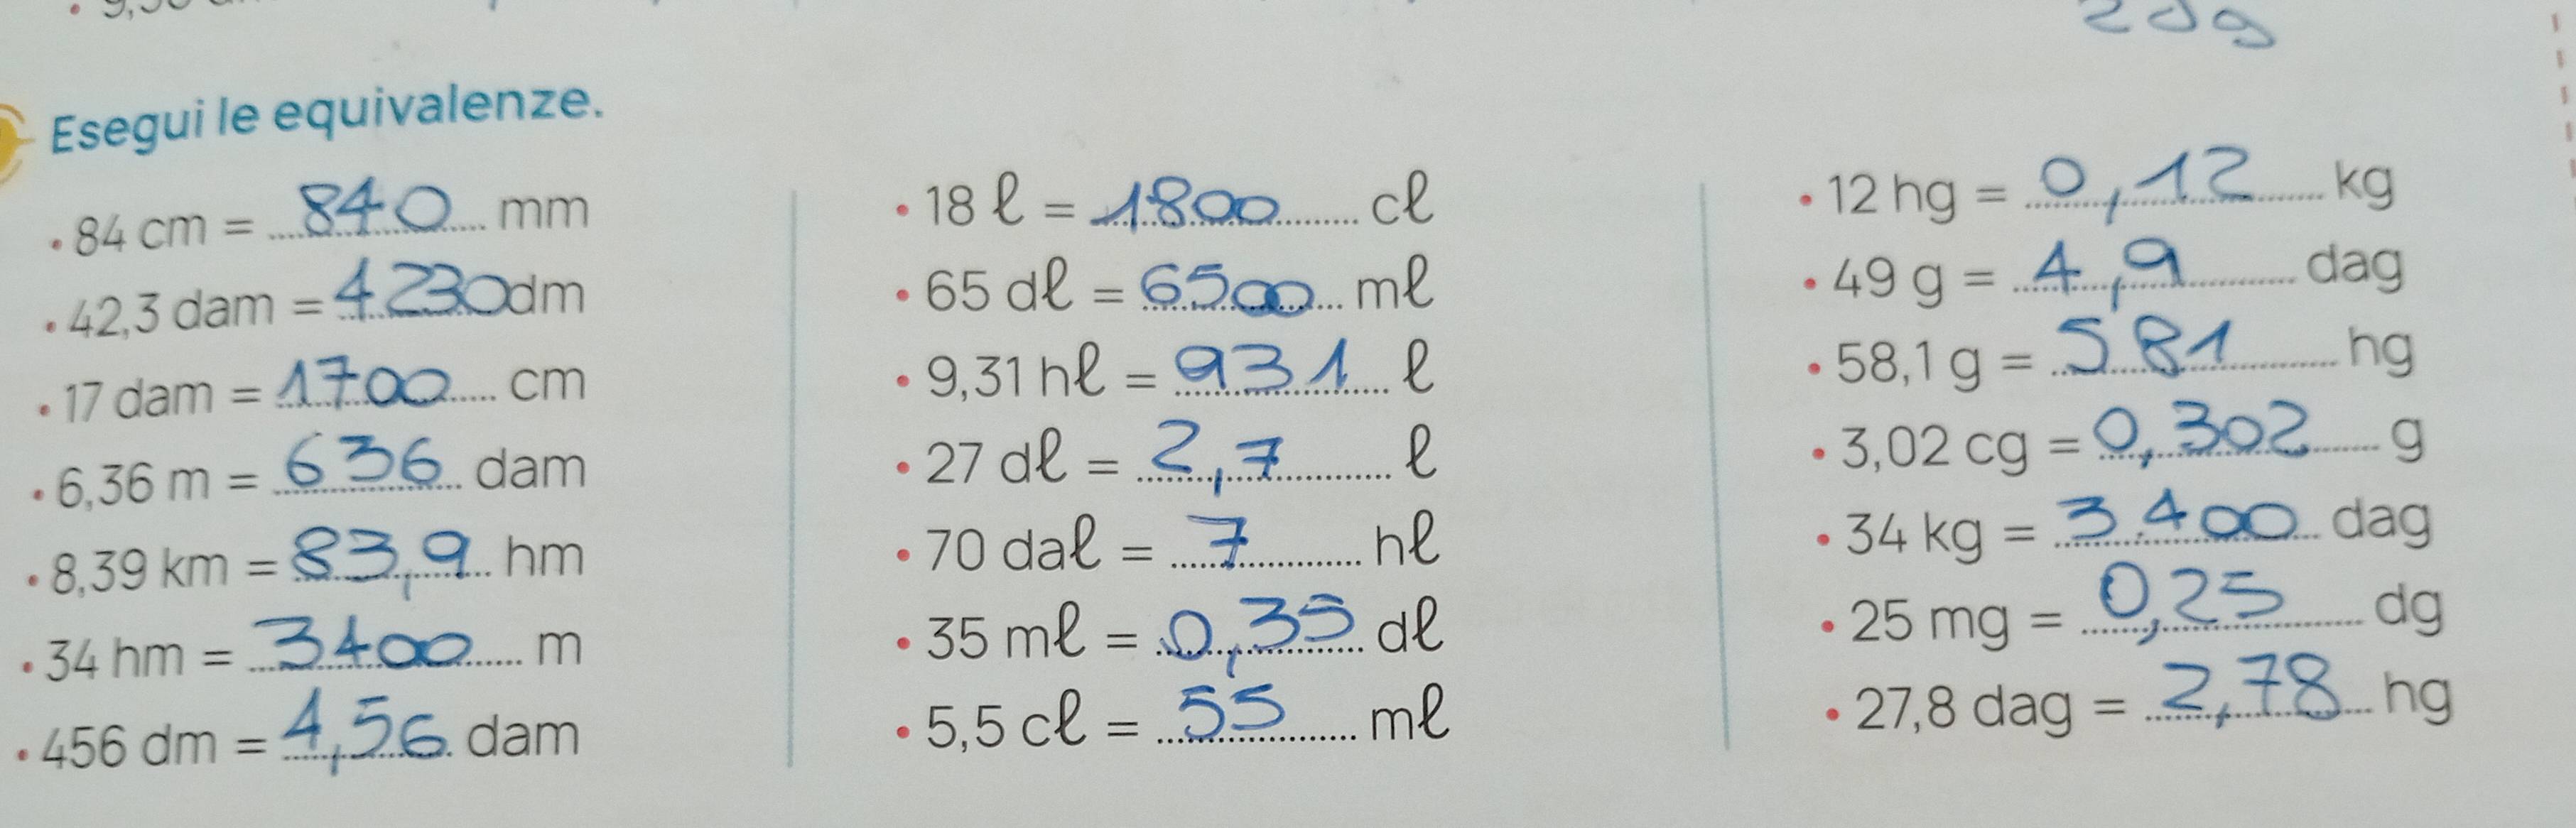 Esegui le equivalenze.
• 84 cm = 840 mm
• 42,3 dam = 4230 dm
• 17 dam = 1700 cm
• 6,36 m = 636 dam
• 8,39 km = 83,9 hm
• 34 hm = 3400 m
• 456 dm = 4,56 dam
• 18 ℓ = 1800 cℓ
• 65 dℓ = 6500 mℓ
• 9,31 hℓ = 931 ℓ
• 27 dℓ = 2,7 ℓ
• 70 daℓ = 7 hℓ
• 35 mℓ = 0,35 dℓ
• 5,5 cℓ = 55 mℓ
• 12 hg = 0,12 kg
• 49 g = 4,9 dag
• 58,1 g = 581 hg
• 3,02 cg = 0,302 g
• 34 kg = 3400 dag
• 25 mg = 0,25 dg
• 27,8 dag = 2,78 hg